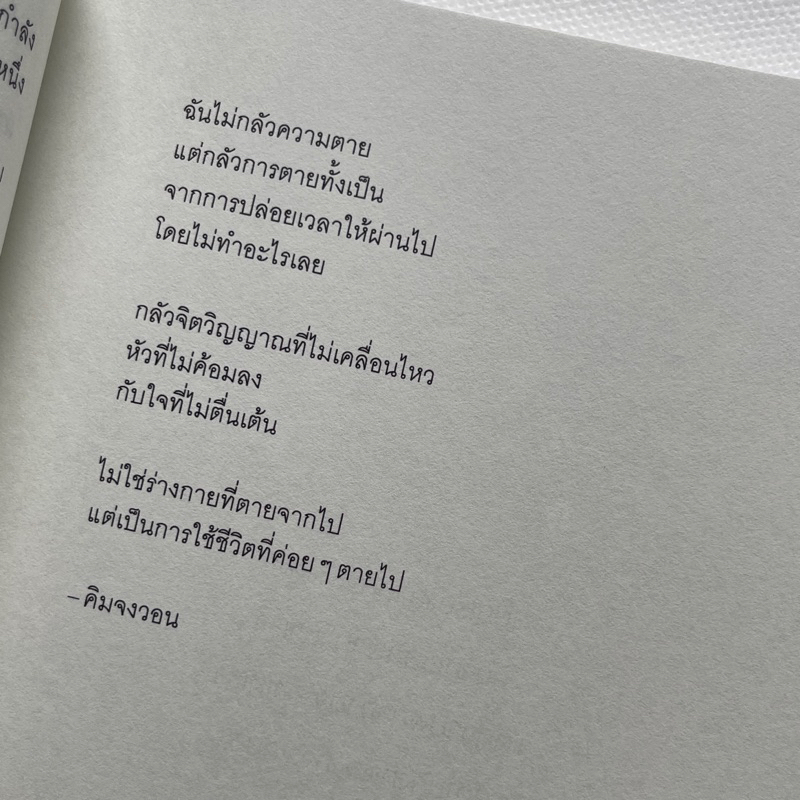 กำลัง
หนึ่ง
ฉันไม่กลัวความตาย
แต่กลัวการตายทั้งเป็น
จากการปล่อยเวลาให้ผ่านไป
โดยไม่ทำอะไรเลย
กลัวจิตวิญญาณที่ไม่เคลื่อนไหว
หัวที่ไม่ค้อมลง
กับใจที่ไม่ตื่นเต้น
ไม่ใช่ร่างกายที่ตายจากไป
แต่เป็นการใช้ชีวิตที่ค่อย ๆ ตายไป
– คิมจงวอน